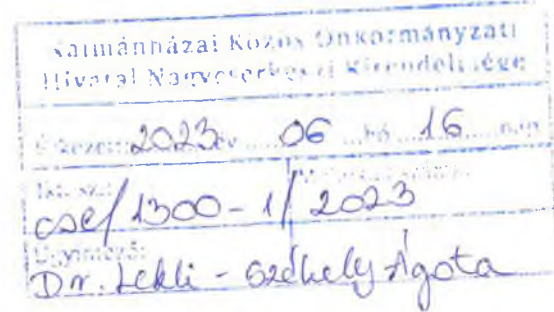 Kálmánházai Közös Önkormányzati
Hivatal Nagycserkeszi Kirendeltsége
Érkezett: 2023 év 06 hó 16 nap
Ikt. sz.:
cse/1300-1/2023
Ügyintéző:
Dr. Lekli - Székely Ágota